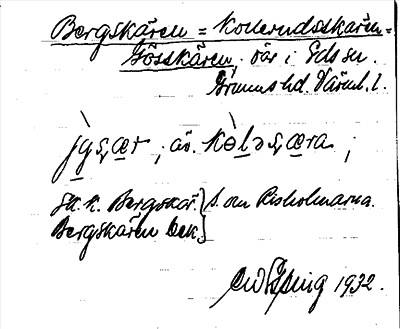 Bergskären = Kollerudsskären =
Gösskären. öar i Eds sn.
Grums hd. Värml. l.
jɡʂær ; äv. kòləʂæra ;
Sk. K. Bergskär. } S. om Risholmarna.
Bergskären Eek.
1932.